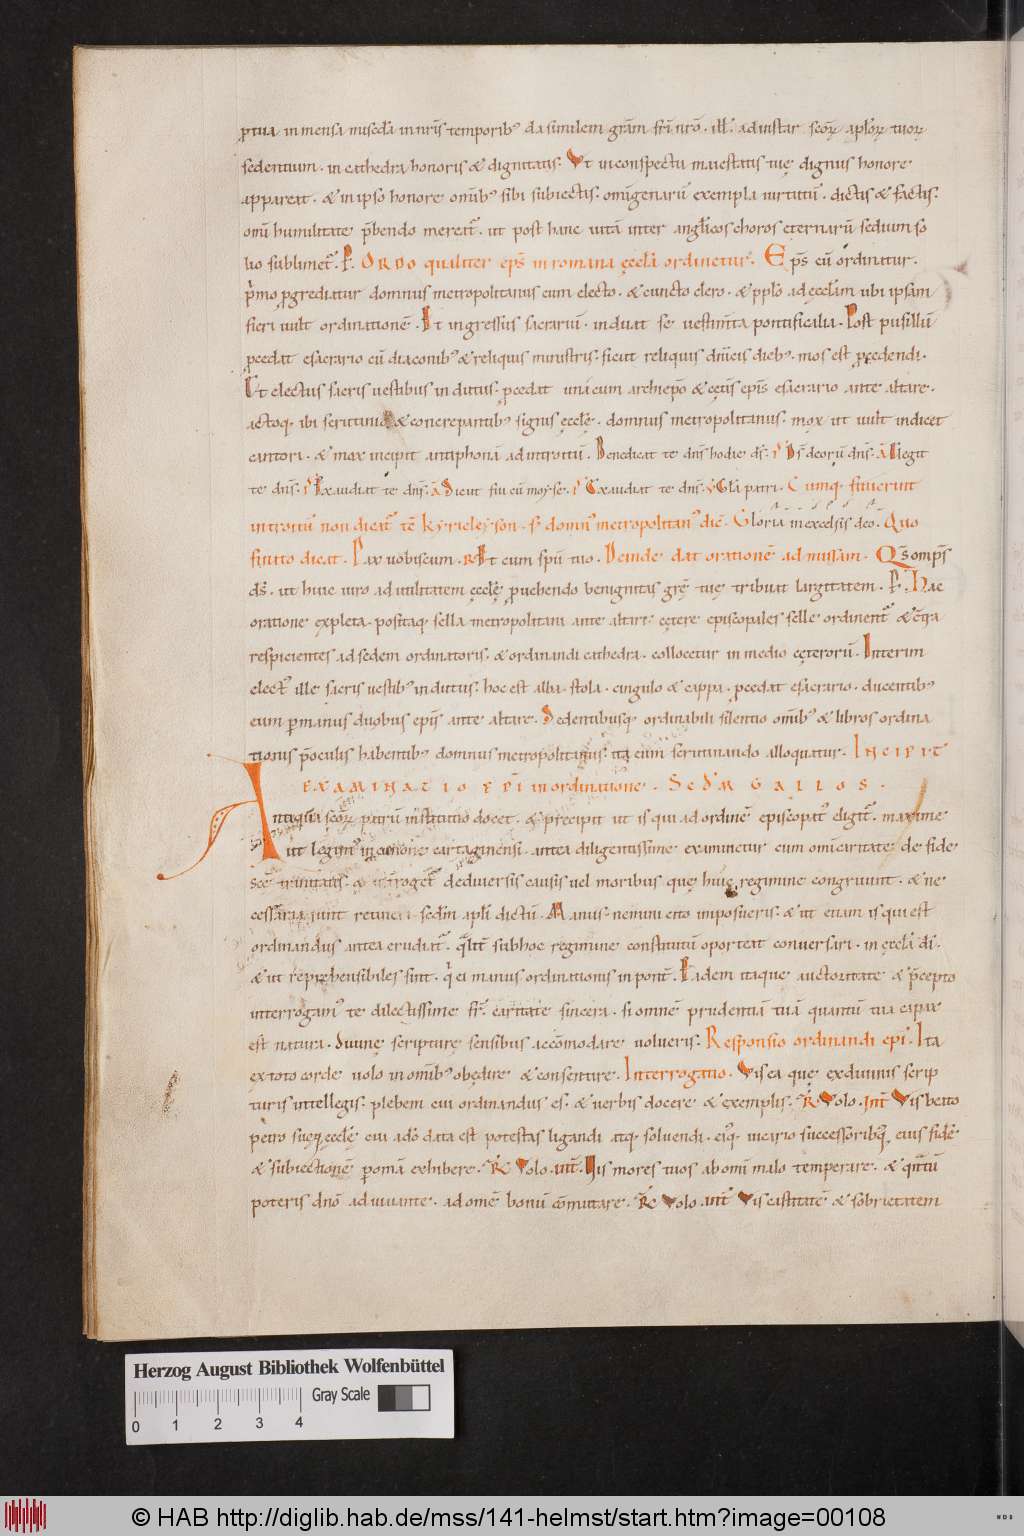 ptua in mensa miseda in nris temporib; da similem gram fri nro. ill. ad instar scoꝝ aploꝝ tuoꝝ
sedentium. in cathedra honoris & dignitatis. Ut in conspectu maiestatis tuę dignus honore
appareat. & in ipso honore omib; sibi subiectis. omigenarū exempla uirtutū. dictis & factis.
omi humilitate p̄bendo mereat᷒. ut post hanc uitā inter anglicos choros ęternarū sedium so
lio sublimet᷒. P. ORDO qualiter eps in romana ęccla ordinetur. Eps cū ordinatur.
p̄mo p̱grediatur domnus metropolitanus cum electo. & cuncto clero. & pplo ad ęcclam ubi ipsam
fieri uult ordinationē. Et ingressus sacrariū. induat se uestimta pontificalia. Post pusillū
p̱cedat esacrario cū diaconib; & reliquis ministris. sicut reliquis dn̄icis dieb;. mos est p̱cedendi.
Et electus sacris uestibus indutus. p̱cedat una cum archiepo & cętis epis esacrario ante altare.
actoq. ibi scrutinio & concrepantib; signis ęcclę. domnus metropolitanus. mox ut uult indicet
cantori. & mox incipit antiphonā ad introitū. Benedicat te dns hodie ds. P Ds deorū dns. A Elegit
te dns. P Exaudiat te dns. A Sicut fui cū moyse. P Exaudiat te dns. V Gla patri. Cumq. finierint
introitū non dicat᷒ tē Kyrieleyson. S; domn; metropolitan; dic̄. Gloria in excelsis deo. Quo
finito dicat. Pax uobiscum. R Et cum spū tuo. Deinde dat orationē ad missam. Qs omps
ds. ut huic uiro ad utilitatem ęcclę prouehendo benignitas grę tuę tribuat largitatem. P. Hac
oratione expleta. positaq. sella metropolitani ante altare cętere episcopales selle ordinent᷒ & cont̄a
respicientes ad sedem ordinatoris. & ordinandi cathedra. collocetur in medio cęterorū. Interim
elect; ille sacris uestib; indutus. hoc est alba. stola. cingulo & cappa. p̱cedat esacrario. ducentib;
eum p̱ manus duobus epis ante altare. Sedentibusq; ordinabili silentio omib; & libros ordina
tionis p̄ oculis habentib; domnus metropolitanus. ita eum scrutinando alloquatur. INCIPIT
EXAMINATIO EPI in ordinatione. SCDM GALLOS.
Antiqua scoꝝ patrū institutio docet. & precipit ut is qui ad ordinē episcopat; eligit᷒. maxime
ut legim; in canone cartaginensi. antea diligentissime examinetur cum omi caritate de fide
scę trinitatis. & interroget᷒ de diuersis causis uel moribus que huic regimine congruunt. & ne
cessaria sunt retineri. scdm apli dictū. Manus nemini cito imposueris. & ut etiam is qui est
ordinandus antea erudiat᷒. qualit sub hoc regimine constitutū oporteat conuersari. in ęccla di.
& ut reprehensibiles sint. qui ei manus ordinationis inponit. Eadem itaque auctoritate & p̄cepto
interrogam; te dilectissime fr. caritate sincera. si omnē prudentiā tuā quantū tua capax
est natura. diuinę scripturę sensibus accōmodare uolueris. Responsio ordinandi epi. Ita
ex toto corde uolo in omib; obędire & consentire. Interrogatio. Vis ea que ex diuinis scrip
turis intellegis. plebem cui ordinandus es. & uerbis docere & exemplis. R Volo. Int Vis beato
petro suęq; ęcclę cui adō data est potestas ligandi atq. soluendi. eiq. uicario successoribq; eius fidē
& subiectionē p̱ omā exhibere. R Volo. Int. Vis mores tuos ab omi malo temperare. & qntū
poteris dno adiuuante. ad omē bonū cōmutare. R Volo. Int Vis castitatē & sobrietatem
Herzog August Bibliothek Wolfenbüttel
Gray Scale
0 1 2 3 4
© HAB http://diglib.hab.de/mss/141-helmst/start.htm?image=00108